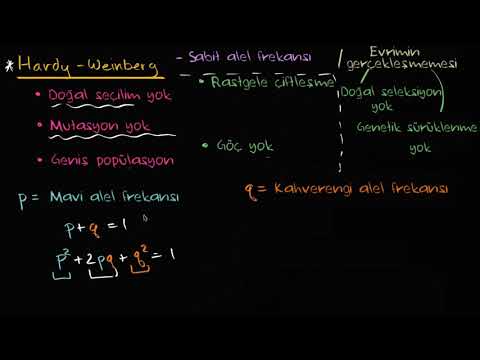 * Hardy-Weinberg
- Sabit alel frekansı
Evrimin
gerçekleşmemesi
• Doğal seçilim yok
• Rastgele çiftleşme
Doğal seleksiyon
yok
• Mutasyon yok
Genetik sürüklenme
yok
• Göç yok
• Geniş popülasyon
p = Mavi alel frekansı
q = Kahverengi alel frekansı
p + q = 1
p² + 2pq + q² = 1